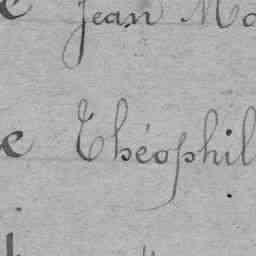 e Jean Mo
e Théophil